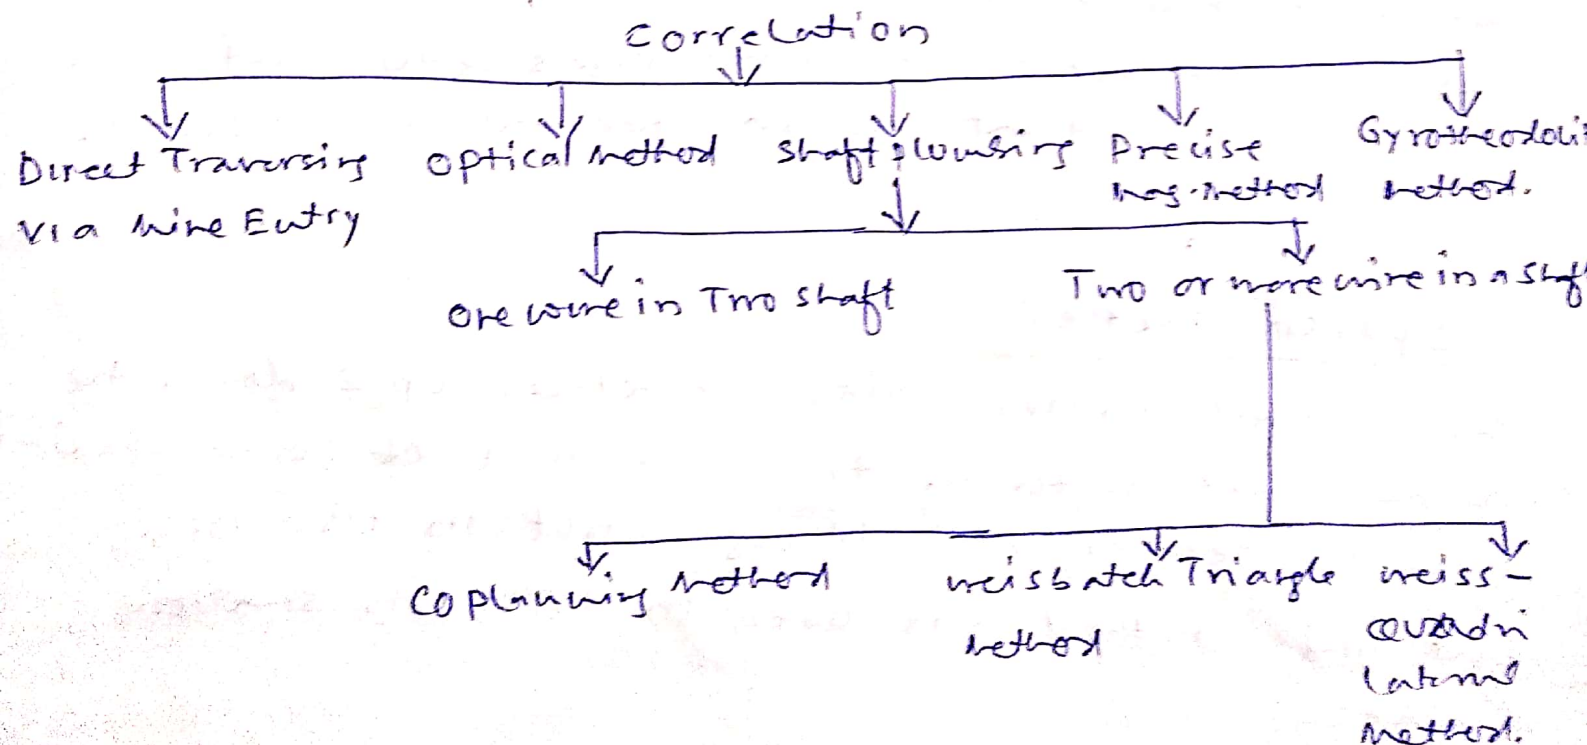 Correlation
Direct Traversing
via Mine Entry
Optical Method
Shaft plumbing
Precise
Mag. Method
Gyrotheodoli
Method.
One wire in Two Shaft
Two or more wire in a Shaf
Coplanning Method
Weisbatch Triangle
Method
Weiss-
Quadri
lateral
Method.